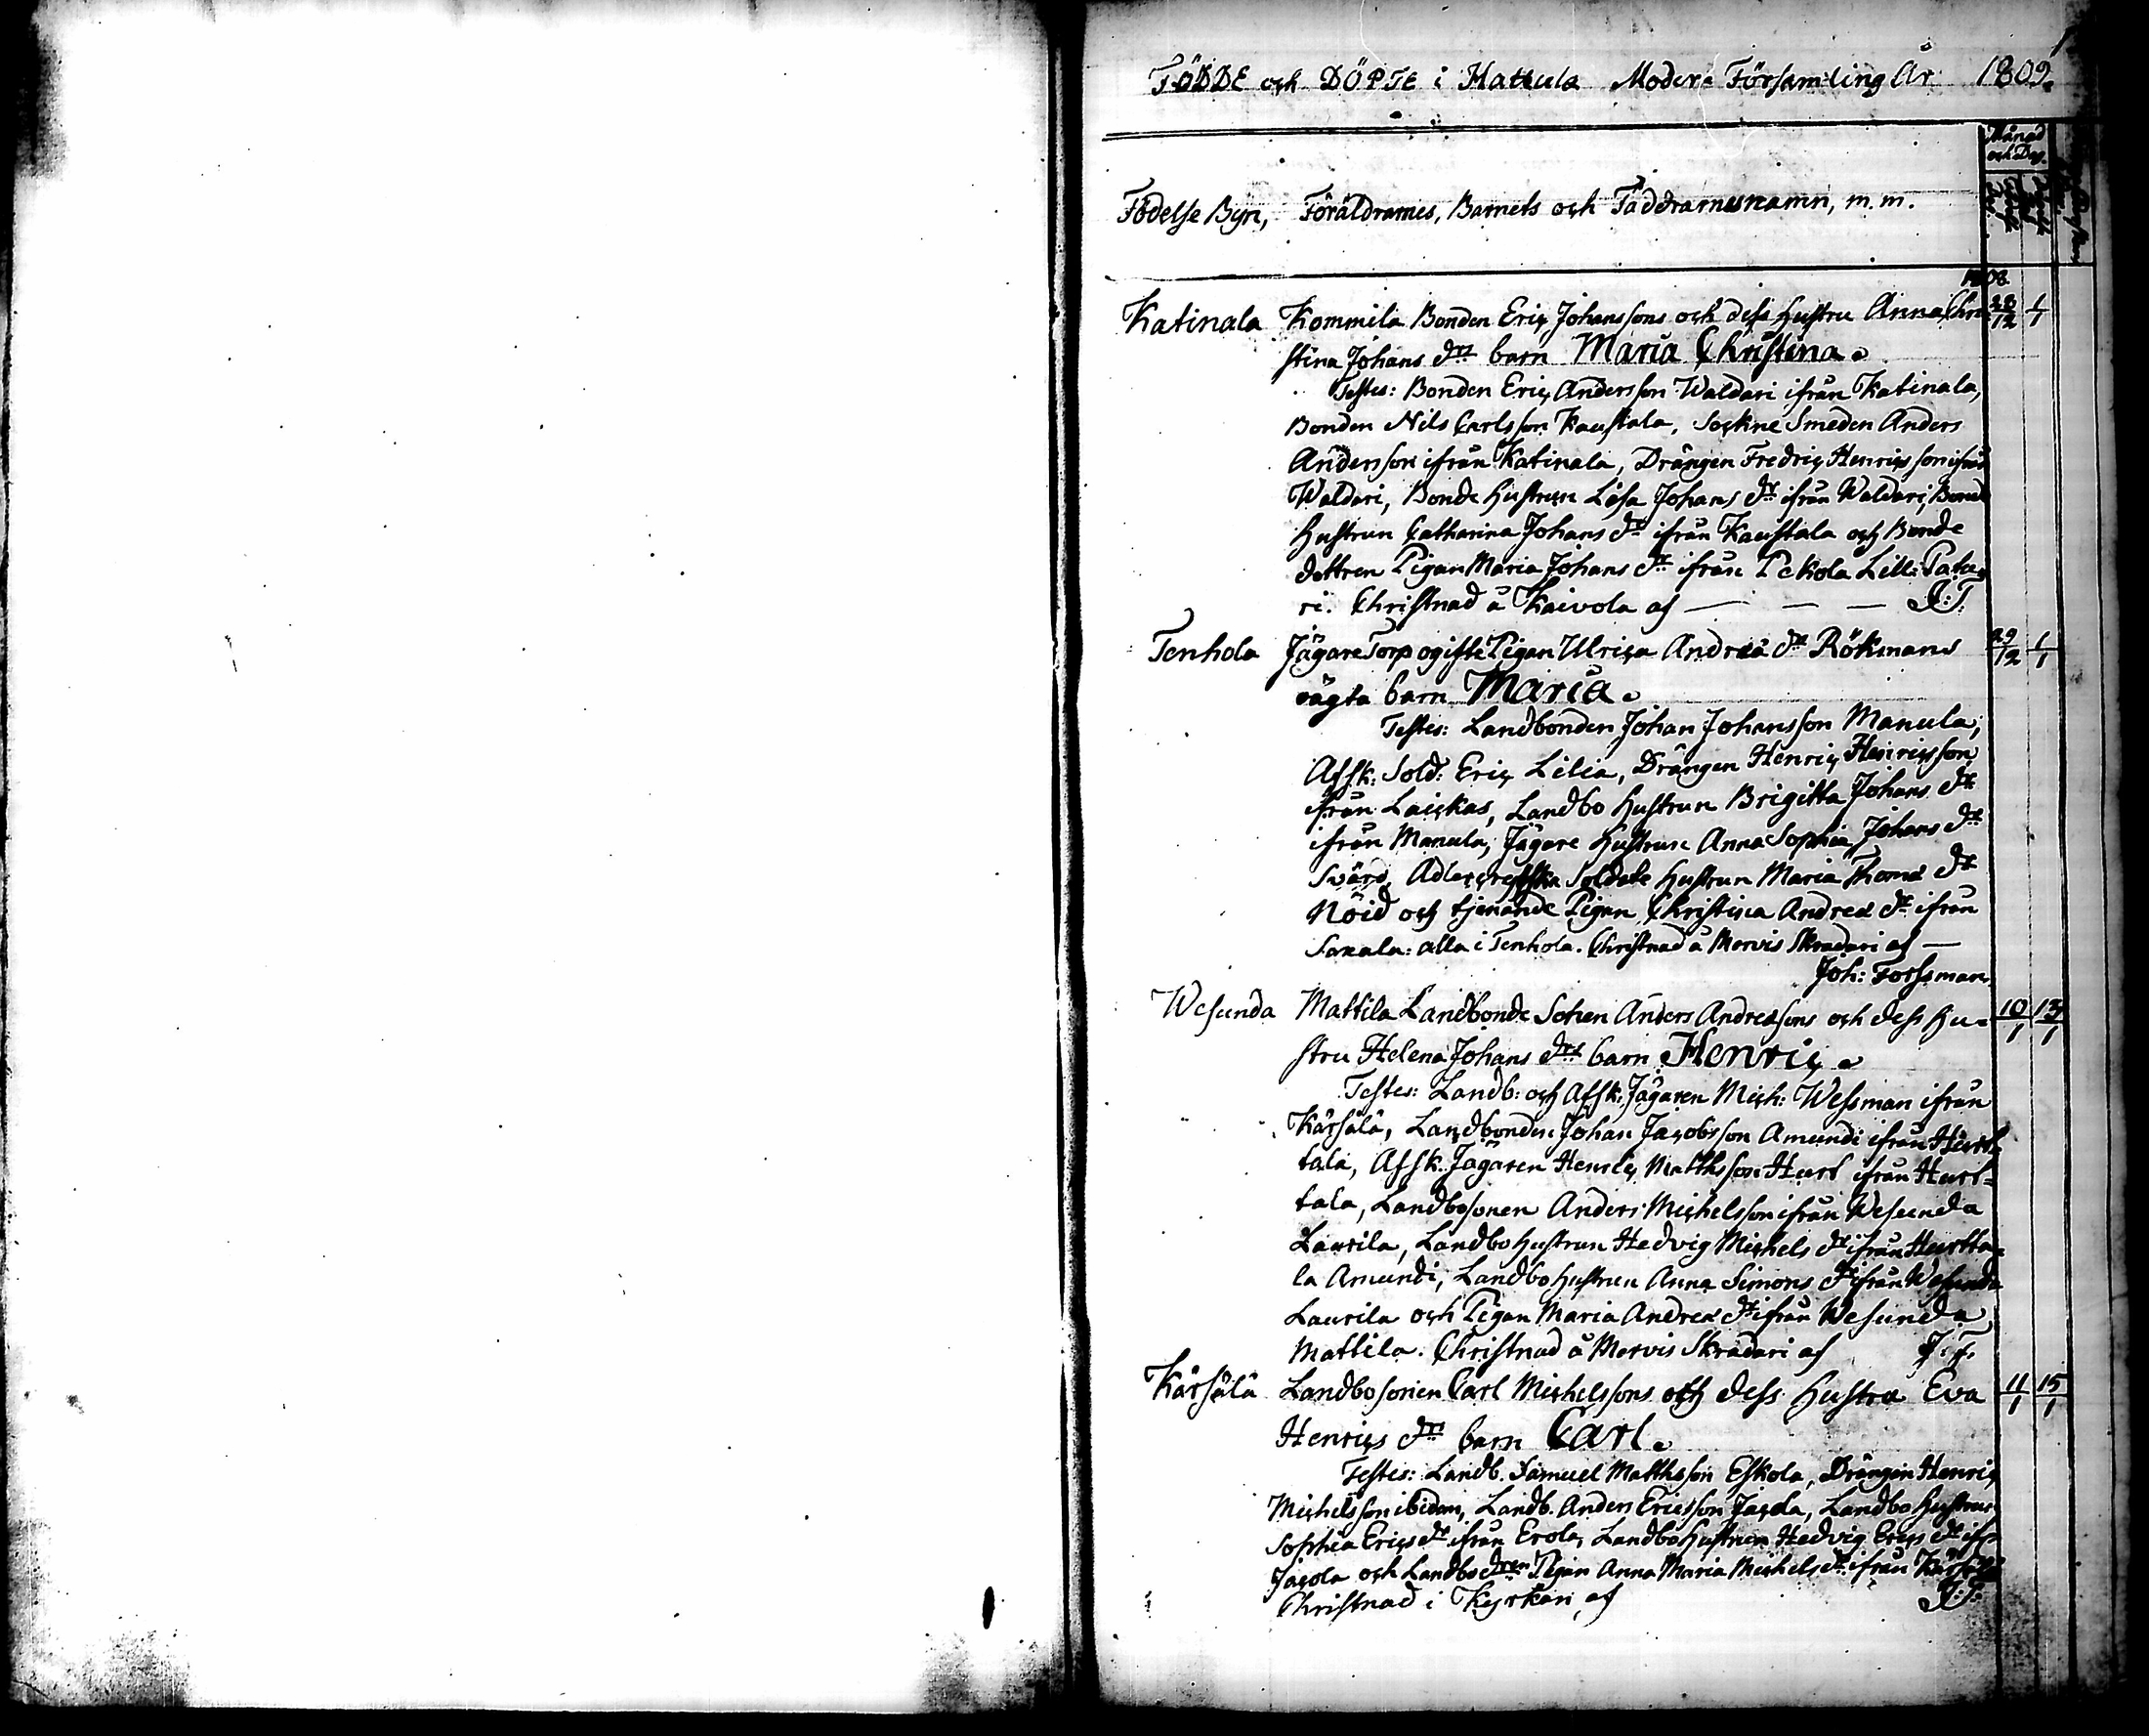 1
FÖDDE och DÖPTE i Hattula Moder= Församling År 1809.
Månad och Dag.
Födelse Byn, Föräldrarnes, Barnets och Faddrarnesnamn, m.m.
1808
Katinala Kommila Bonden Eric Johanssons och dess hustru Anna Chri 28/12 1/1
stina Johans drs barn Maria Christina.
Testes: Bonden Eric Andersson Waldari ifrån Katinala,
Bonden Nils Carlsson Kaustala, Sockne Smeden Anders
Andersson ifrån Katinala, Drängen Fredric Henricsson ifrån
Waldari, Bonde hustrun Lisa Johans dr ifrån Waldari, Bonde
hustrun Catharina Johans dr ifrån Kaustala och Bonde
dottren Pigan Maria Johans dr ifrån Pekola Lill:
ri. Christnad å Kaivola af — — —
Tenhola Jägare Torp ogifte Pigan Ulrica Andreæ dr Rökmans 29/12 1/1
oägta barn Maria.
Testes: Landbonden Johan Johansson Manula,
Afsk: Sold: Eric Lilia, Drängen Henric Henricsson
ifrån Laickas, Landbo hustrun Brigitta Johans dr
ifrån Manula, Jägare hustrun Anna Sophia Johans dr
Svärd, Soldate hustrun Maria Thomæ dr
Nöid och tjenande Pigan Christina Andreæ dr ifrån
alla i Tenhola. Christnad å Mervis Skradari af —
Joh: Forssman
Wesunda Mattila Landbonde Sonen Anders Andreæsons och dess hu= 10/1 13/1
stru Helena Johans drs barn Henric.
Testes: Landb: och Afsk: Jägaren Mich: Wessman ifrån
Kärsälä, Landbonden Johan Jacobsson Amundi ifrån Hurt=
tala, Afsk. Jägaren Henric Matthsson Hurt ifrån Hurt=
tala, Landbosonen Anders Michelsson ifrån Wesunda
Laurila, Landbo hustrun Hedvig Michels dr ifrån Hurtta=
la Amundi, Landbo hustrun Anna Simons dr ifrån Wesunda
Laurila och Pigan Maria Andreæ dr ifrån Wesunda
Mattila. Christnad å Mervis Skradari af J: F.
Kärsälä Landbosonen Carl Michelssons och dess hustru Eva 11/1 15/1
Henrics drs barn Carl.
Testes: Landb. Samuel Matthsson Eskola, Drängen Henric
Michelsson ibidem, Landb. Anders Ericsson Jacola, Landbo hustrun
Sophia Erics dr ifrån Erola, Landbo hustrun Hedvig Erics dr ifr
Jacola och Landbo dren Pigan Anna Maria Michels dr ifrån Kärsälä
Christnad i Kyrkan af